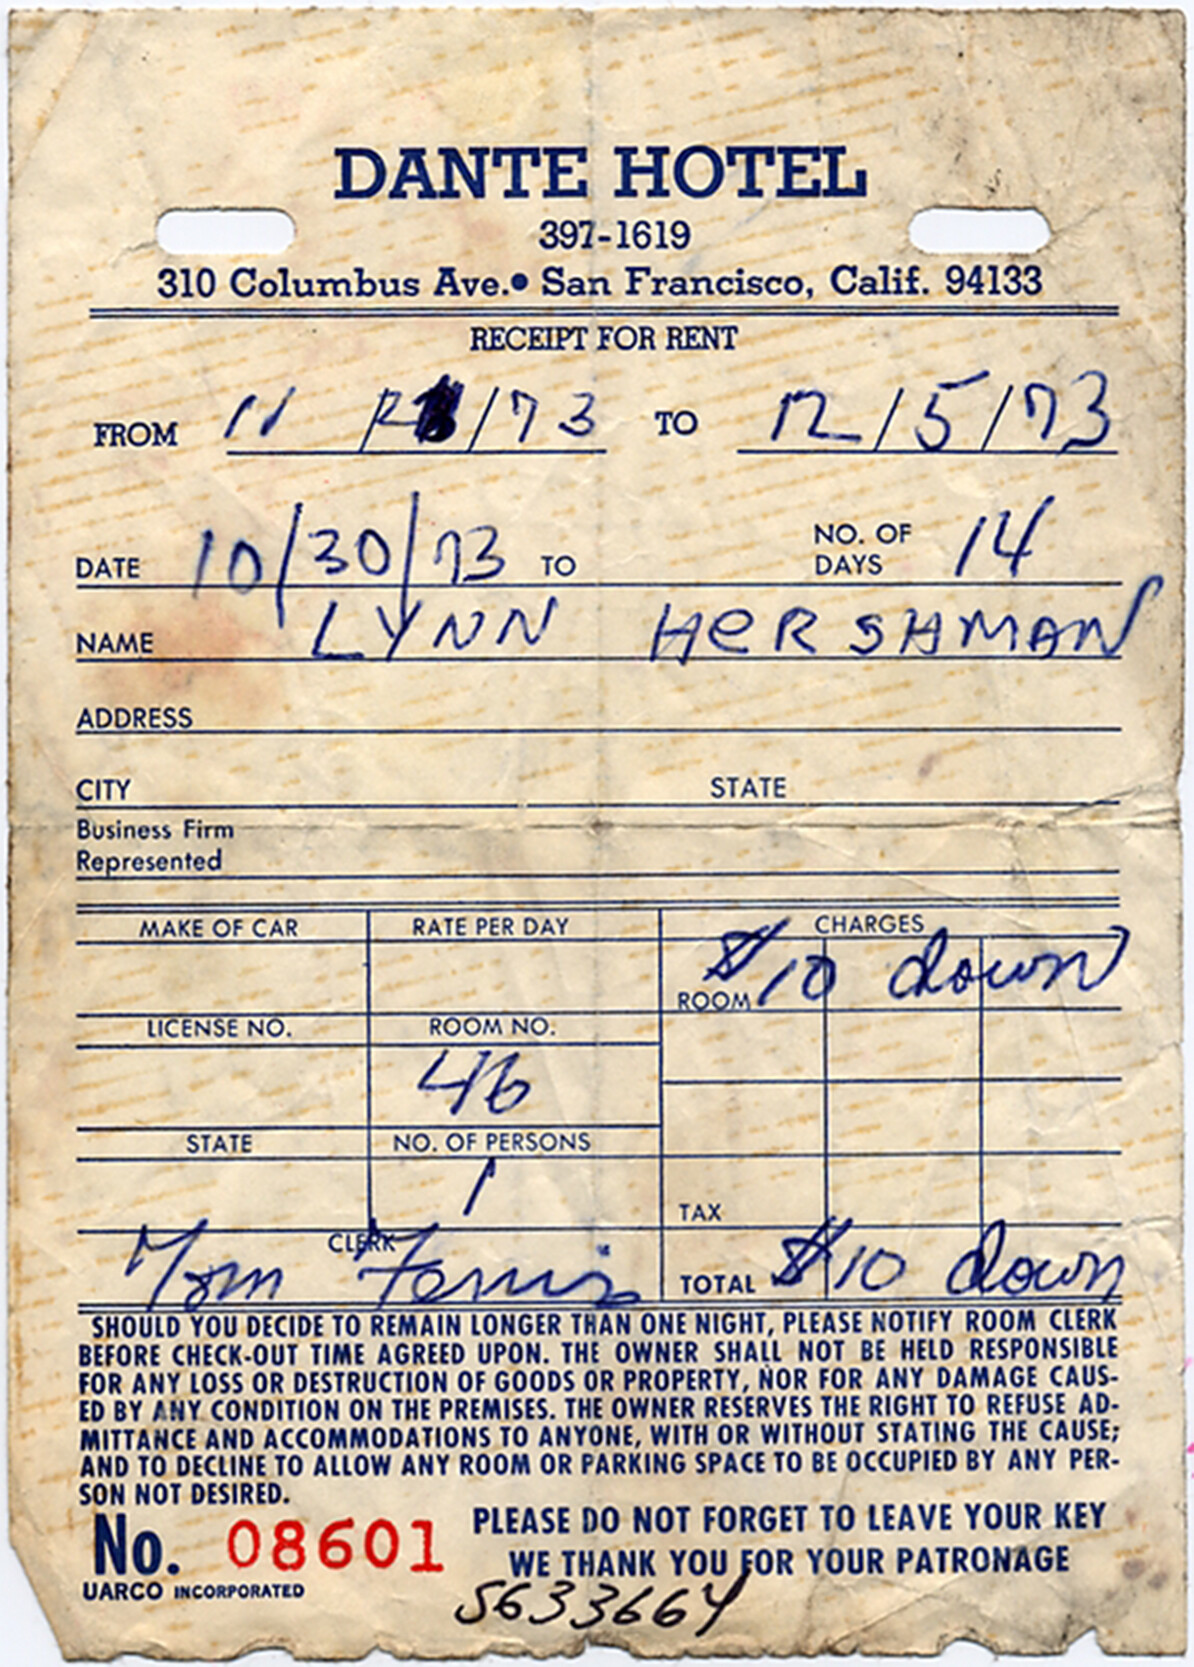 DANTE HOTEL
397-1619
310 Columbus Ave.• San Francisco, Calif. 94133
RECEIPT FOR RENT
FROM 11 /2 /73 TO 12/5/73
DATE 10/30/73 TO NO. OF DAYS 14
NAME LYNN HeRSHMAN
ADDRESS
CITY STATE
Business Firm
Represented
MAKE OF CAR RATE PER DAY CHARGES
ROOM $10 down
LICENSE NO. ROOM NO.
46
STATE NO. OF PERSONS
1
TAX
CLERK Tom Ferris TOTAL $10 down
SHOULD YOU DECIDE TO REMAIN LONGER THAN ONE NIGHT, PLEASE NOTIFY ROOM CLERK
BEFORE CHECK-OUT TIME AGREED UPON. THE OWNER SHALL NOT BE HELD RESPONSIBLE
FOR ANY LOSS OR DESTRUCTION OF GOODS OR PROPERTY, NOR FOR ANY DAMAGE CAUS-
ED BY ANY CONDITION ON THE PREMISES. THE OWNER RESERVES THE RIGHT TO REFUSE AD-
MITTANCE AND ACCOMMODATIONS TO ANYONE, WITH OR WITHOUT STATING THE CAUSE;
AND TO DECLINE TO ALLOW ANY ROOM OR PARKING SPACE TO BE OCCUPIED BY ANY PER-
SON NOT DESIRED.
No. 08601 PLEASE DO NOT FORGET TO LEAVE YOUR KEY
WE THANK YOU FOR YOUR PATRONAGE
UARCO INCORPORATED
5633664